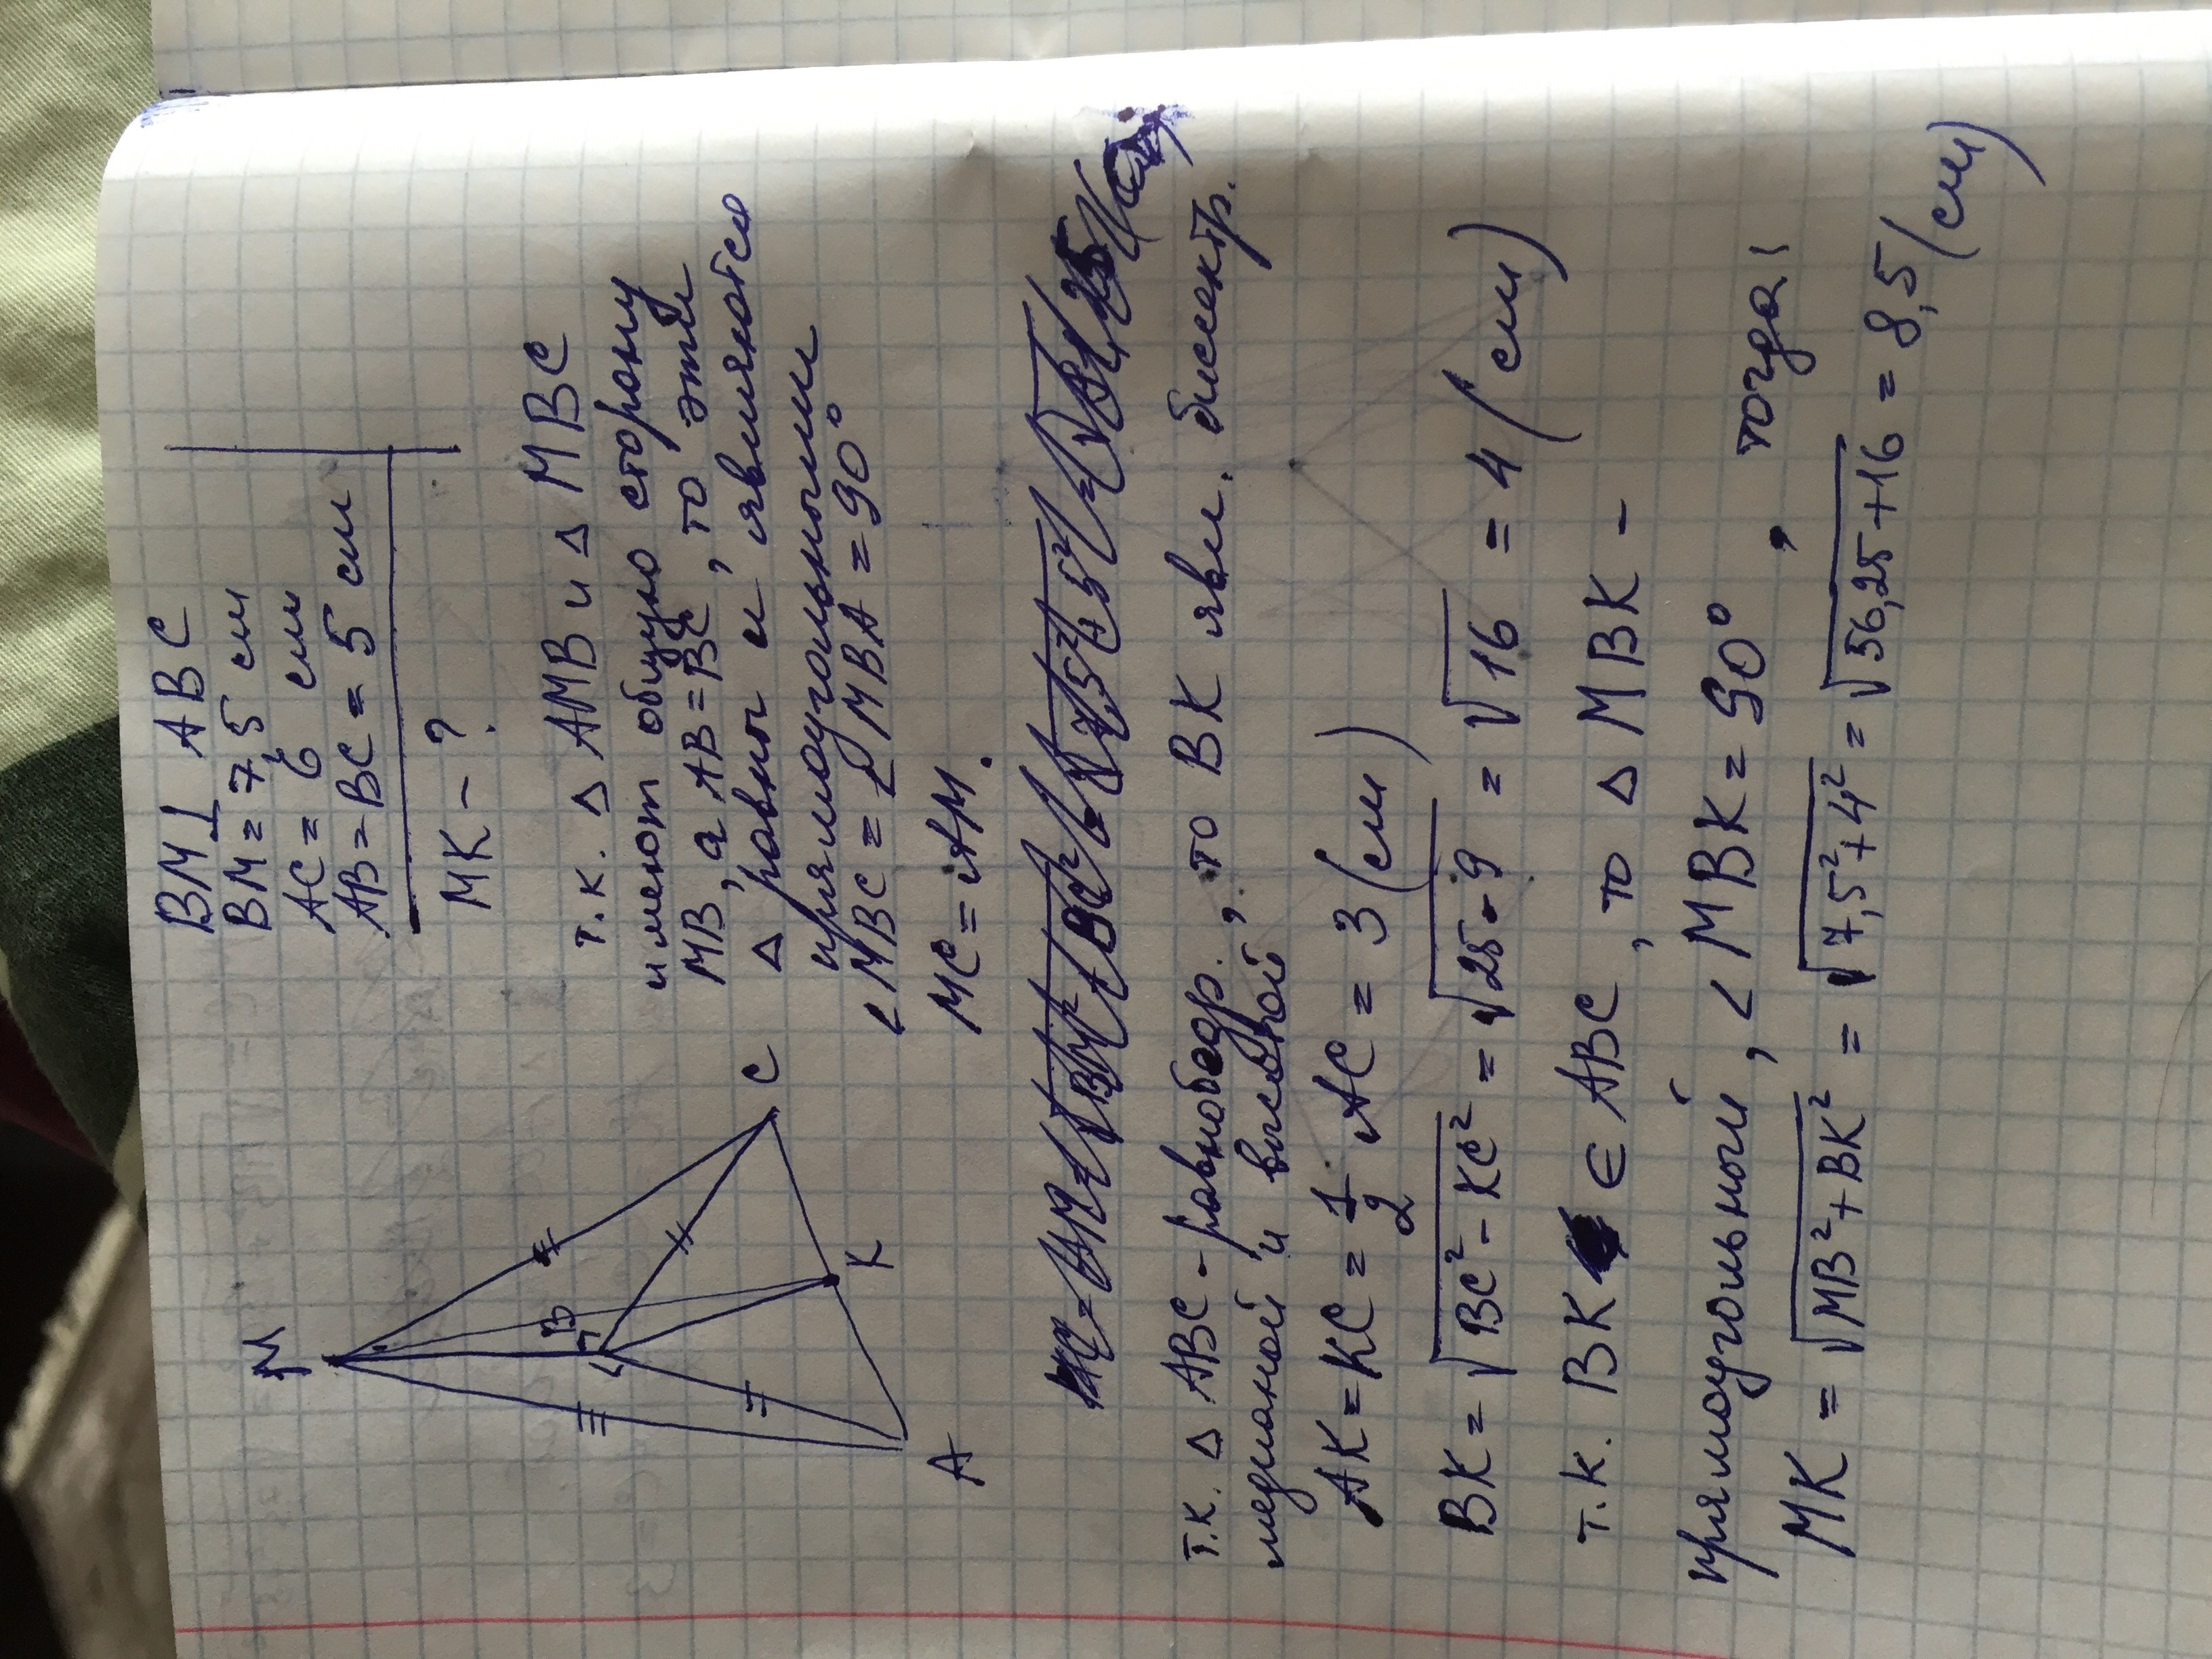 BM⊥ ABC
BM = 7,5 см
AC = 6 см
AB = BC = 5 см
MK – ?
M
B
C
K
A
т.к. △ AMB и △ MBC
имеют общую сторону
MB, а AB = BC, то эти
△ равны и являются
прямоугольными
∠MBC = ∠MBA = 90°
MC = AM.
MC = AM = √BM² + BC² = √7,5² + 5² = √81,25 (см)
т.к. △ ABC – равнобедр., то BK явл. биссектр.
медианой и высотой
AK = KC = 1/2 AC = 3 (см)
BK = √BC² – KC² = √25 - 9 = √16 = 4 (см)
т.к. BK ∈ ABC, то △ MBK –
прямоугольный, ∠MBK = 90°, тогда:
MK = √MB² + BK² = √7,5² + 4² = √56,25 + 16 = 8,5 (см)